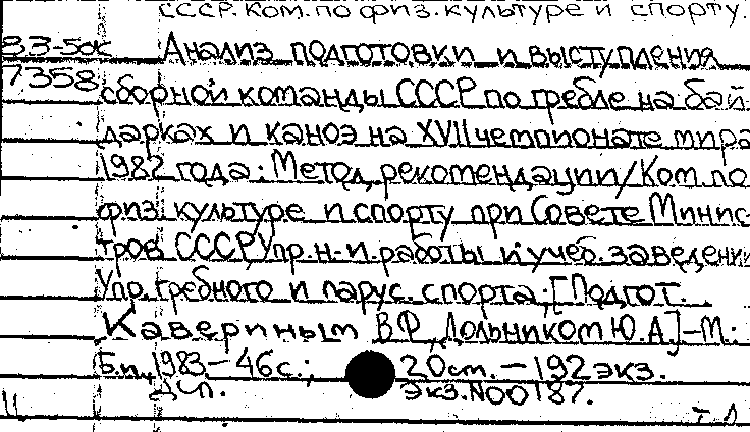 СССР. Ком. по физ. культуре и спорту.
83-50к Анализ подготовки и выступления
7358 сборной команды СССР по гребле на бай
дарках и каноэ на XVII чемпионате мира
1982 года: Метод. рекомендации/Ком. по
физ. культуре и спорту при Совете Минис-
тров СССР, Упр. н.-и. работы и учеб. заведений
Упр. гребного и парус. спорта; [Подгот.
Кавериным В.Ф., Дольником Ю.А.]-М.:
Б.и., 1983.-46с.; 20см.-192экз.
ДСП. Экз.N00187.
11 т-л